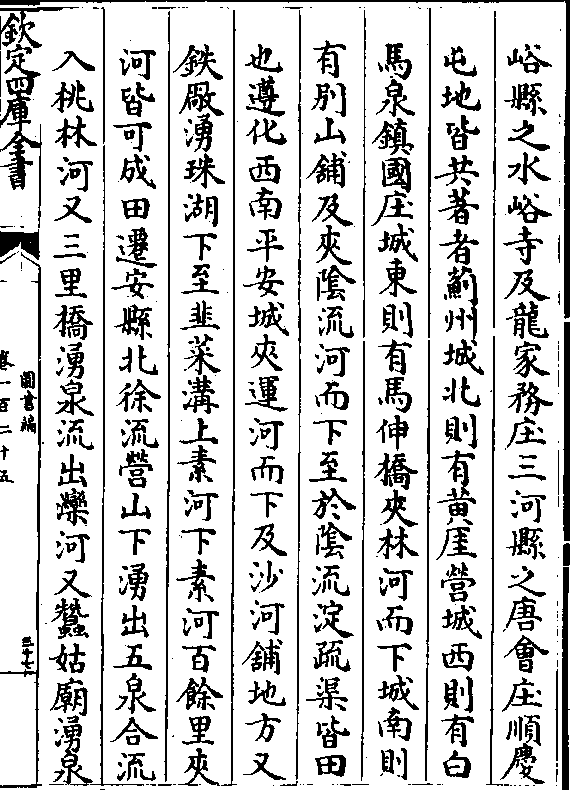 峪縣之水峪寺及龍家務庄三河縣之唐會庄順慶
屯地皆其著者薊州城北則有黄厓營城西則有白
馬泉鎮國庄城東則有馬伸橋夾林河而下城南則
有別山舖及夾陰流河而下至於陰流淀疏渠皆田
也遵化西南平安城夾運河而下及沙河舖地方又
鉄厰湧珠湖下至韭菜溝上素河下素河百餘里夾
河皆可成田遷安縣北徐流營山下湧出五泉合流
入桃林河又三里橋湧泉流出灤河又蠶姑廟湧泉
欽定四庫全書
圖書編
卷一百二十五
三十七